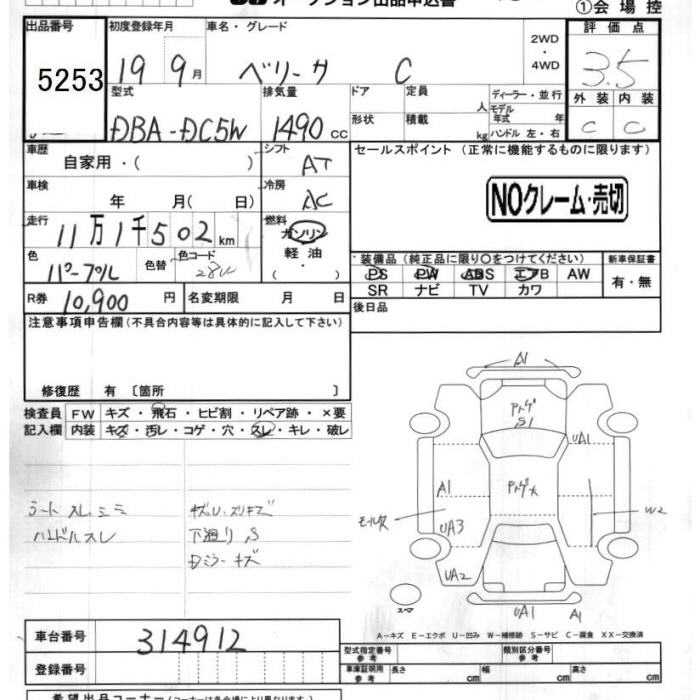 オークション出品申込書
①会場控
出品番号 初度登録年月 車名・グレード 2WD・4WD 評価点
5253 19 9月 ベリーサ C 3.5
型式 排気量 ドア 定員 人 ディーラー・並行 外装 内装
DBA-DC5W 1490cc 形状 積載 kg モデル年式 年 ハンドル 左・右 C C
車歴 自家用・( ) シフト AT セールスポイント (正常に機能するものに限ります)
車検 年 月( 日) 冷房 AC
NOクレーム・売切
走行 11万1千502km 燃料 ガソリン
軽油・( )
色 パープル 色替 色コード 28W
装備品 (純正品に限り○をつけてください) 新車保証書
PS PW ABS エアB AW 有・無
SR ナビ TV カワ
R券 10,900円 名変期限 月 日 後日品
注意事項申告欄(不具合内容等は具体的に記入して下さい)
修復歴 有 〔箇所 〕
検査員 FW キズ・飛石・ヒビ割・リペア跡・×要
記入欄 内装 キズ・汚レ・コゲ・穴・スレ・キレ・破レ
シートスレ、シミ キズU、スリキズ
ハンドルスレ 下廻りS
Dミラーキズ
A1
S1
UA1
A1
W2
UA3
UA2
UA1 A1
A-キズ E-エクボ U-凹み W-補修跡 S-サビ C-腐食 XX-交換済
車台番号 314912
登録番号
型式指定番号 参考 類別区分番号 参考
車庫証明用 参考 長さ cm 幅 cm 高さ cm
希望出品コーナー